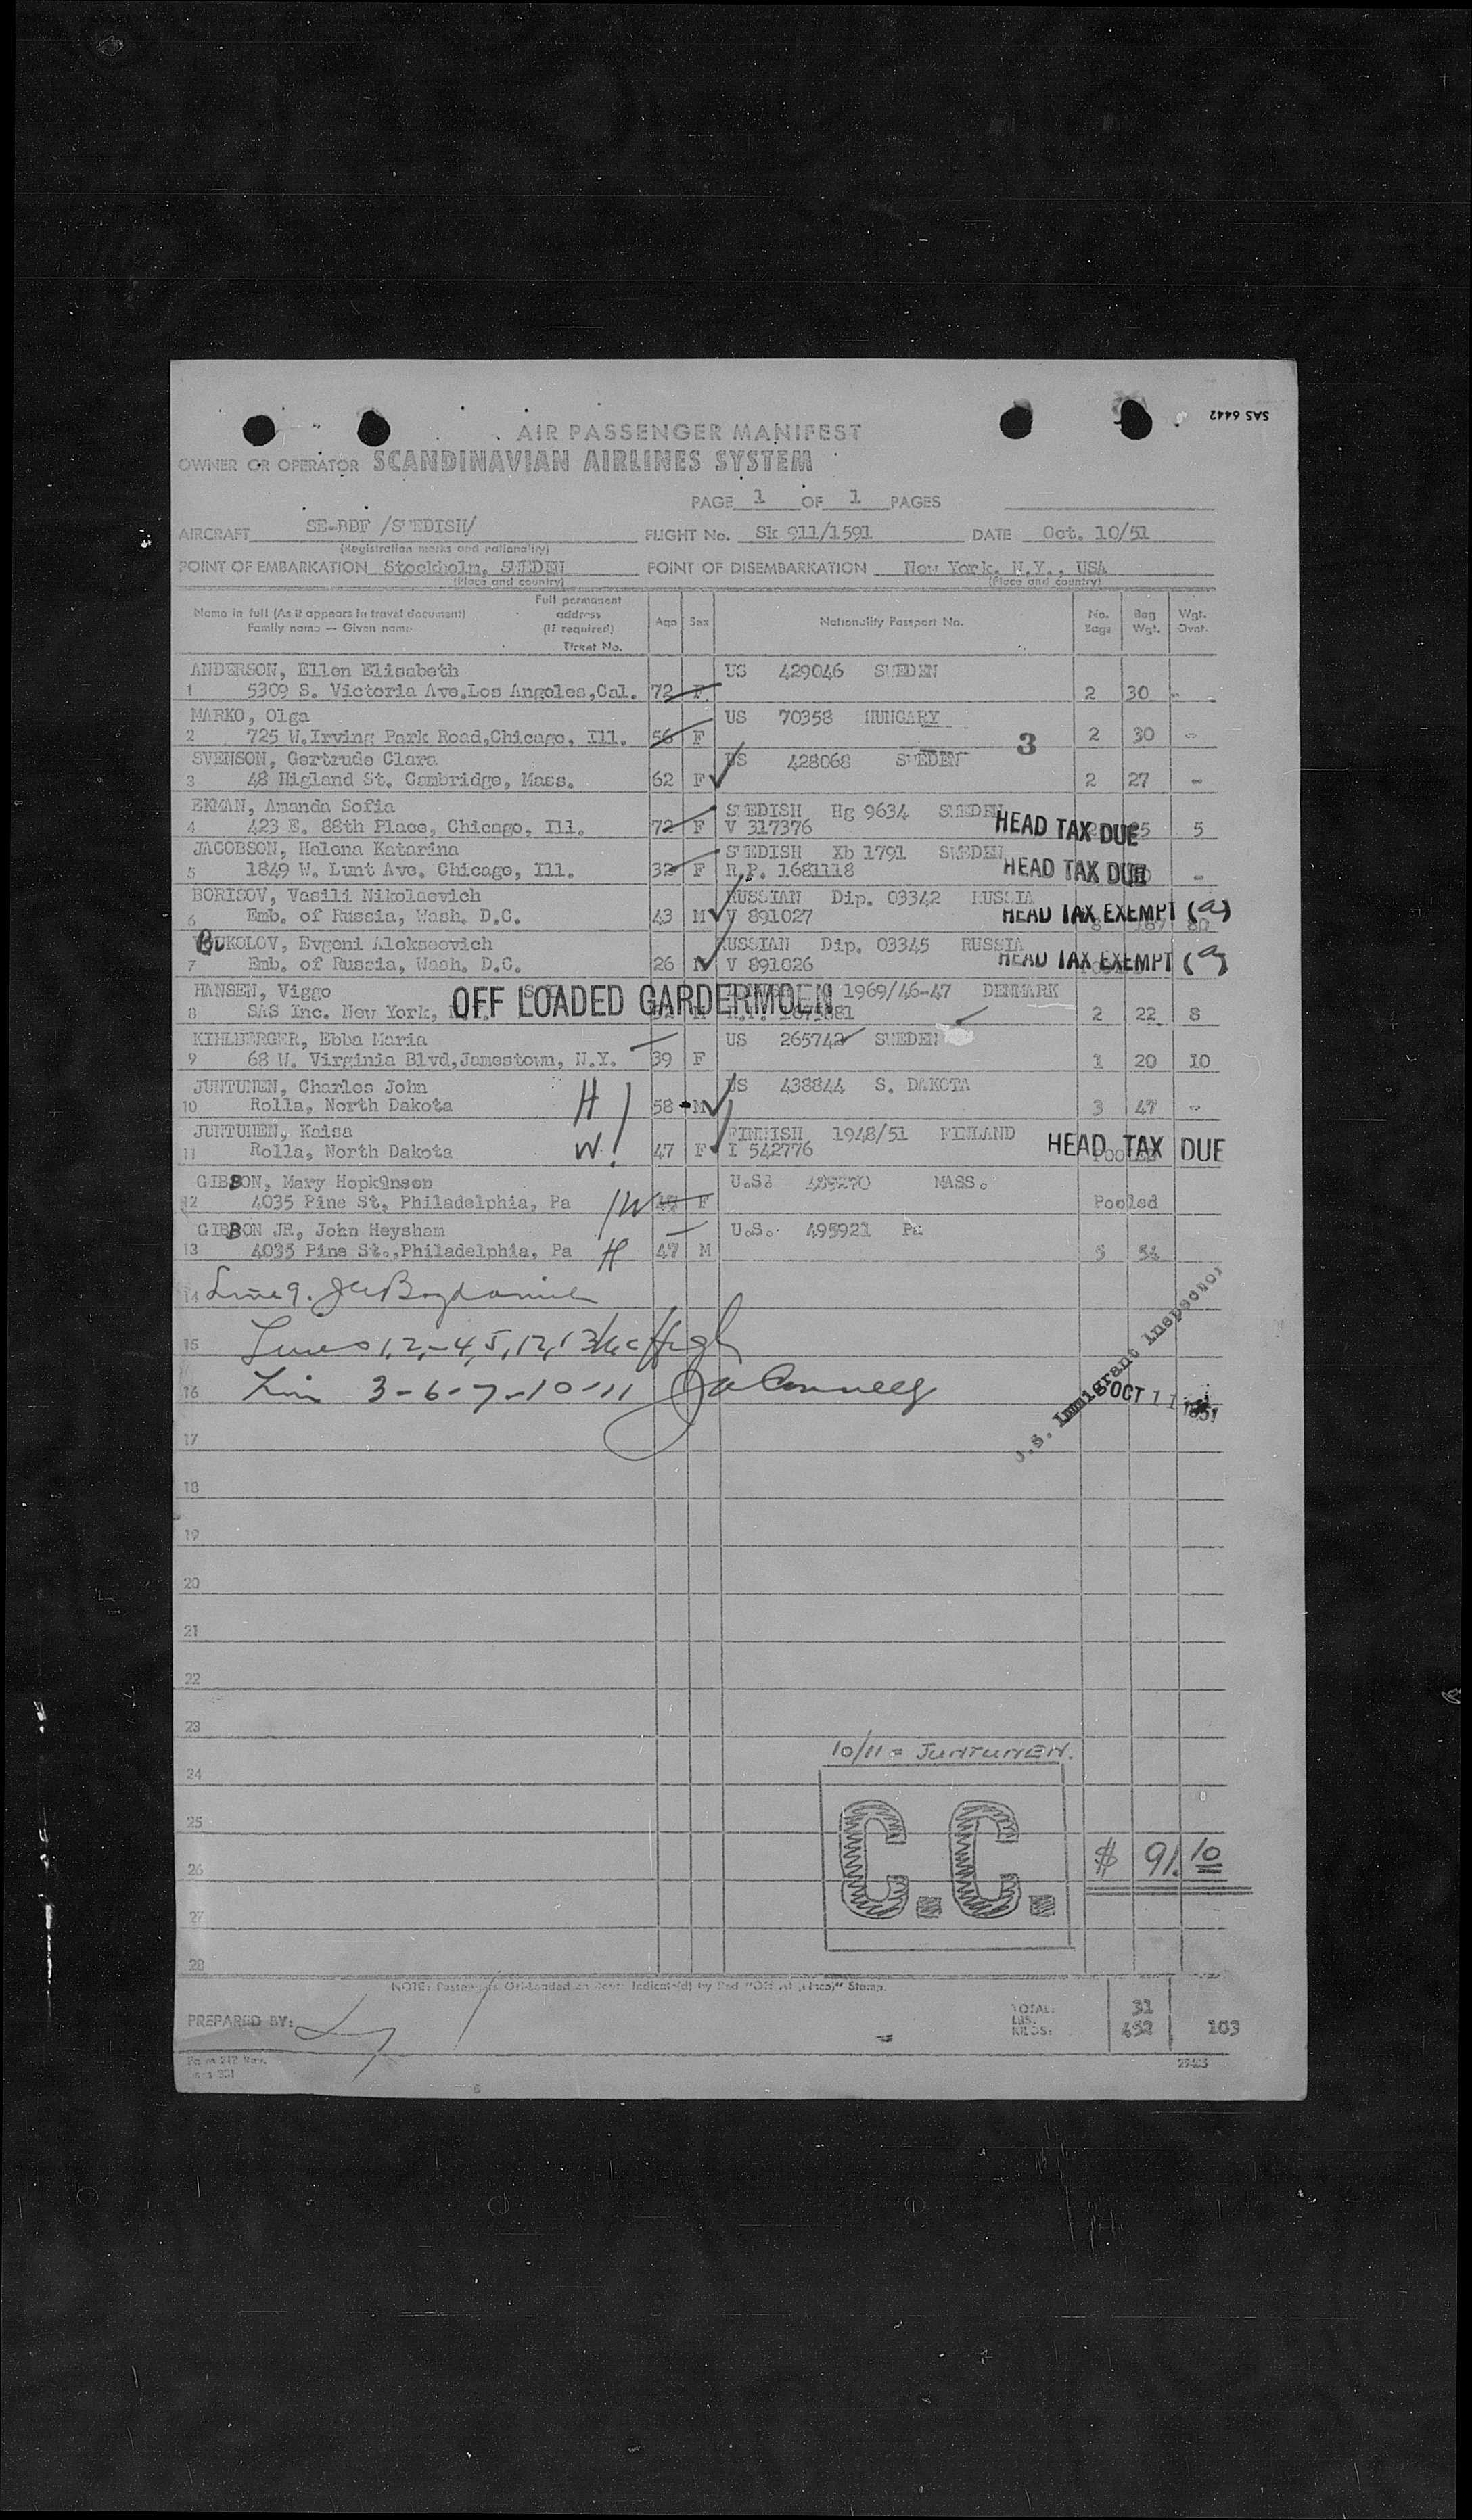 SAS 6442
AIR PASSENGER MANIFEST
OWNER OR OPERATOR SCANDINAVIAN AIRLINES SYSTEM
PAGE 1 OF 1 PAGES
AIRCRAFT SE-BDF /SWEDISH/ FLIGHT No. Sk 911/1591 DATE Oct. 10/51
(Registration marks and nationality)
POINT OF EMBARKATION Stockholm, SWEDEN POINT OF DISEMBARKATION New York, N.Y., USA
(Place and country) (Place and country)
Name in full (As it appears in travel document) Family name — Given name Full permanent address (If required) Ticket No. Age Sex Nationality Passport No. No. Bags Bag Wgt. Wgt. Ovnt.
ANDERSON, Ellen Elisabeth US 429046 SWEDEN
1 5309 S. Victoria Ave,Los Angeles,Cal. 72 F. 2 30 -
MARKO, Olga US 70358 HUNGARY
2 725 W.Irving Park Road,Chicago, Ill. 56 F 3 2 30 -
SVENSON, Gertrude Clara US 428068 SWEDEN
3 48 Higland St. Cambridge, Mass. 62 F 2 27 -
EKMAN, Amanda Sofia SWEDISH Hg 9634 SWEDEN
4 423 E. 88th Place, Chicago, Ill. 72 F V 317376 HEAD TAX DUE 5
JACOBSON, Helena Katarina SWEDISH Xb 1791 SWEDEN
5 1849 W. Lunt Ave. Chicago, Ill. 32 F R.P. 1681118 HEAD TAX DUE -
BORISOV, Vasili Nikolaevich RUSSIAN Dip. 03342 RUSSIA
6 Emb. of Russia, Wash. D.C. 43 M V 891027 HEAD TAX EXEMPT (a) 80
BUKOLOV, Evgeni Alekseevich RUSSIAN Dip. 03345 RUSSIA
7 Emb. of Russia, Wash. D.C. 26 M V 891026 HEAD TAX EXEMPT (a)
HANSEN, Viggo 1969/46-47 DENMARK
OFF LOADED GARDERMOEN
8 SAS Inc. New York, 2 22 8
KIHLBERGER, Ebba Maria US 265742 SWEDEN
9 68 W. Virginia Blvd,Jamestown, N.Y. 39 F 1 20 10
JUNTUNEN, Charles John H US 438844 S. DAKOTA
10 Rolla, North Dakota 58 M 3 47 -
JUNTUNEN, Kaisa FINNISH 1948/51 FINLAND
11 Rolla, North Dakota W 47 F I 542776 HEAD TAX DUE Pooled
GIBBON, Mary Hopkinson U.S. 489270 MASS.
12 4035 Pine St. Philadelphia, Pa W F Pooled
GIBBON JR, John Heysham U.S. 495921 Pa
13 4035 Pine St.,Philadelphia, Pa H 47 M 5 54
14 Line 9.
15 Lines 1, 2,-4, 5, 12, 13
16 Lin 3-6-7-10-11
U.S. Immigrant Inspector
OCT 11 1951
17
18
19
20
21
22
23
10/11 = JUNTUNEN.
24
25
C.C.
$ 91.10
26
27
28
NOTE: Passengers Off-Loaded en Route Indicate(d) by Red "Off At (Place)" Stamp.
PREPARED BY:
TOTAL: 31
LBS.
KILOS: 452 103